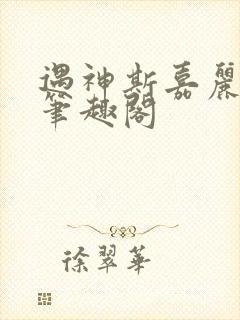 遇神斯嘉麗
筆趣閣
徐翠華